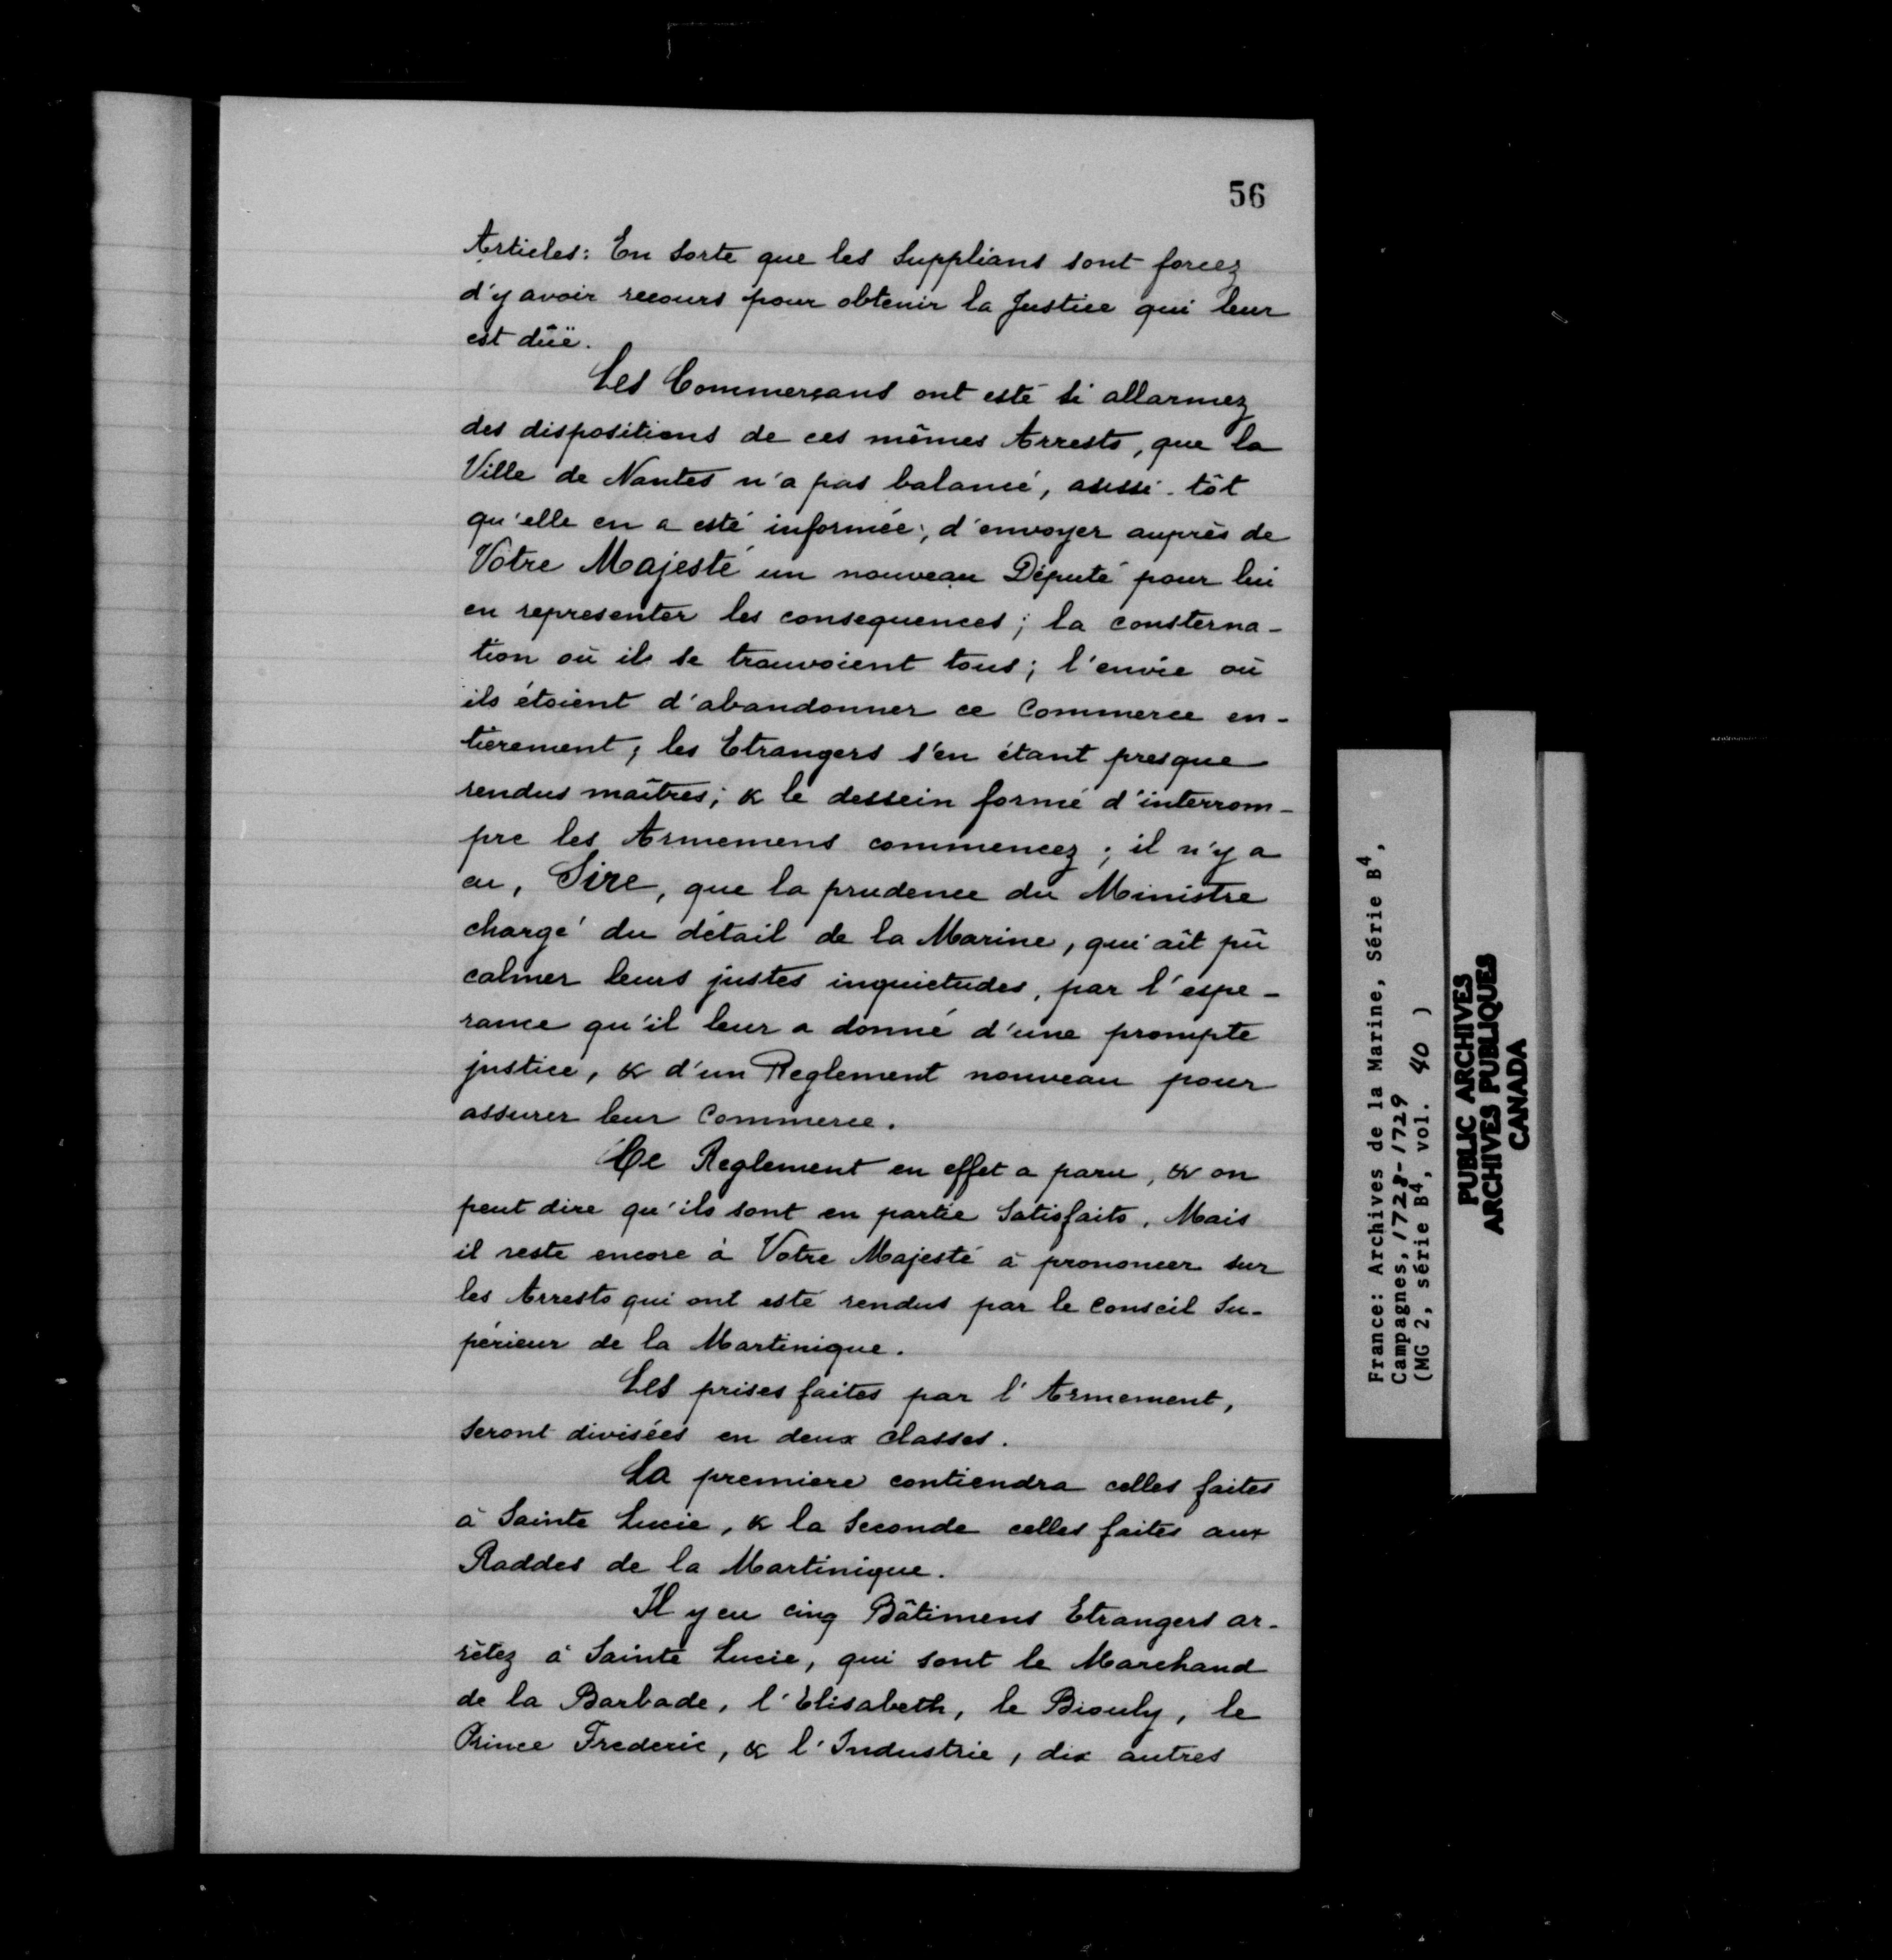 56
Articles: En sorte que les Supplians sont forcez
d'y avoir recours pour obtenir la Justice qui leur
est dûë.
Les Commerçans ont esté si allarmez
des dispositions de ces mêmes Arrests, que la
Ville de Nantes n'a pas balancé, aussi-tôt
qu'elle en a esté informée, d'envoyer auprès de
Votre Majesté un nouveau Député pour lui
en representer les consequences; la consterna-
tion où ils se trouvoient tous; l'envie où
ils étoient d'abandonner ce Commerce en-
tierement; les Etrangers s'en étant presque
rendus maîtres; & le dessein formé d'interrom-
pre les Armemens commencez; il n'y a
eu, Sire, que la prudence du Ministre
chargé du détail de la Marine, qui ait pû
calmer leurs justes inquietudes, par l'espe-
rance qu'il leur a donné d'une prompte
justice, & d'un Reglement nouveau pour
assurer leur Commerce.
Ce Reglement en effet a paru, & on
peut dire qu'ils sont en partie Satisfaits, Mais
il reste encore à Votre Majesté à prononcer sur
les Arrests qui ont esté rendus par le Conseil Su-
périeur de la Martinique.
Les prises faites par l'Armement,
seront divisées en deux classes.
La premiere contiendra celles faites
à Sainte Lucie, & la Seconde celles faites aux
Raddes de la Martinique.
Il y eu cinq Bâtimens Etrangers ar-
rêtez à Sainte Lucie, qui sont le Marchand
de la Barbade, l'Elisabeth, le Biouly, le
Prince Frederic, & l'Industrie, dix autres
France: Archives de la Marine, Série B4,
Campagnes, 1728-1729
(MG 2, série B4, vol. 40 )
PUBLIC ARCHIVES
ARCHIVES PUBLIQUES
CANADA